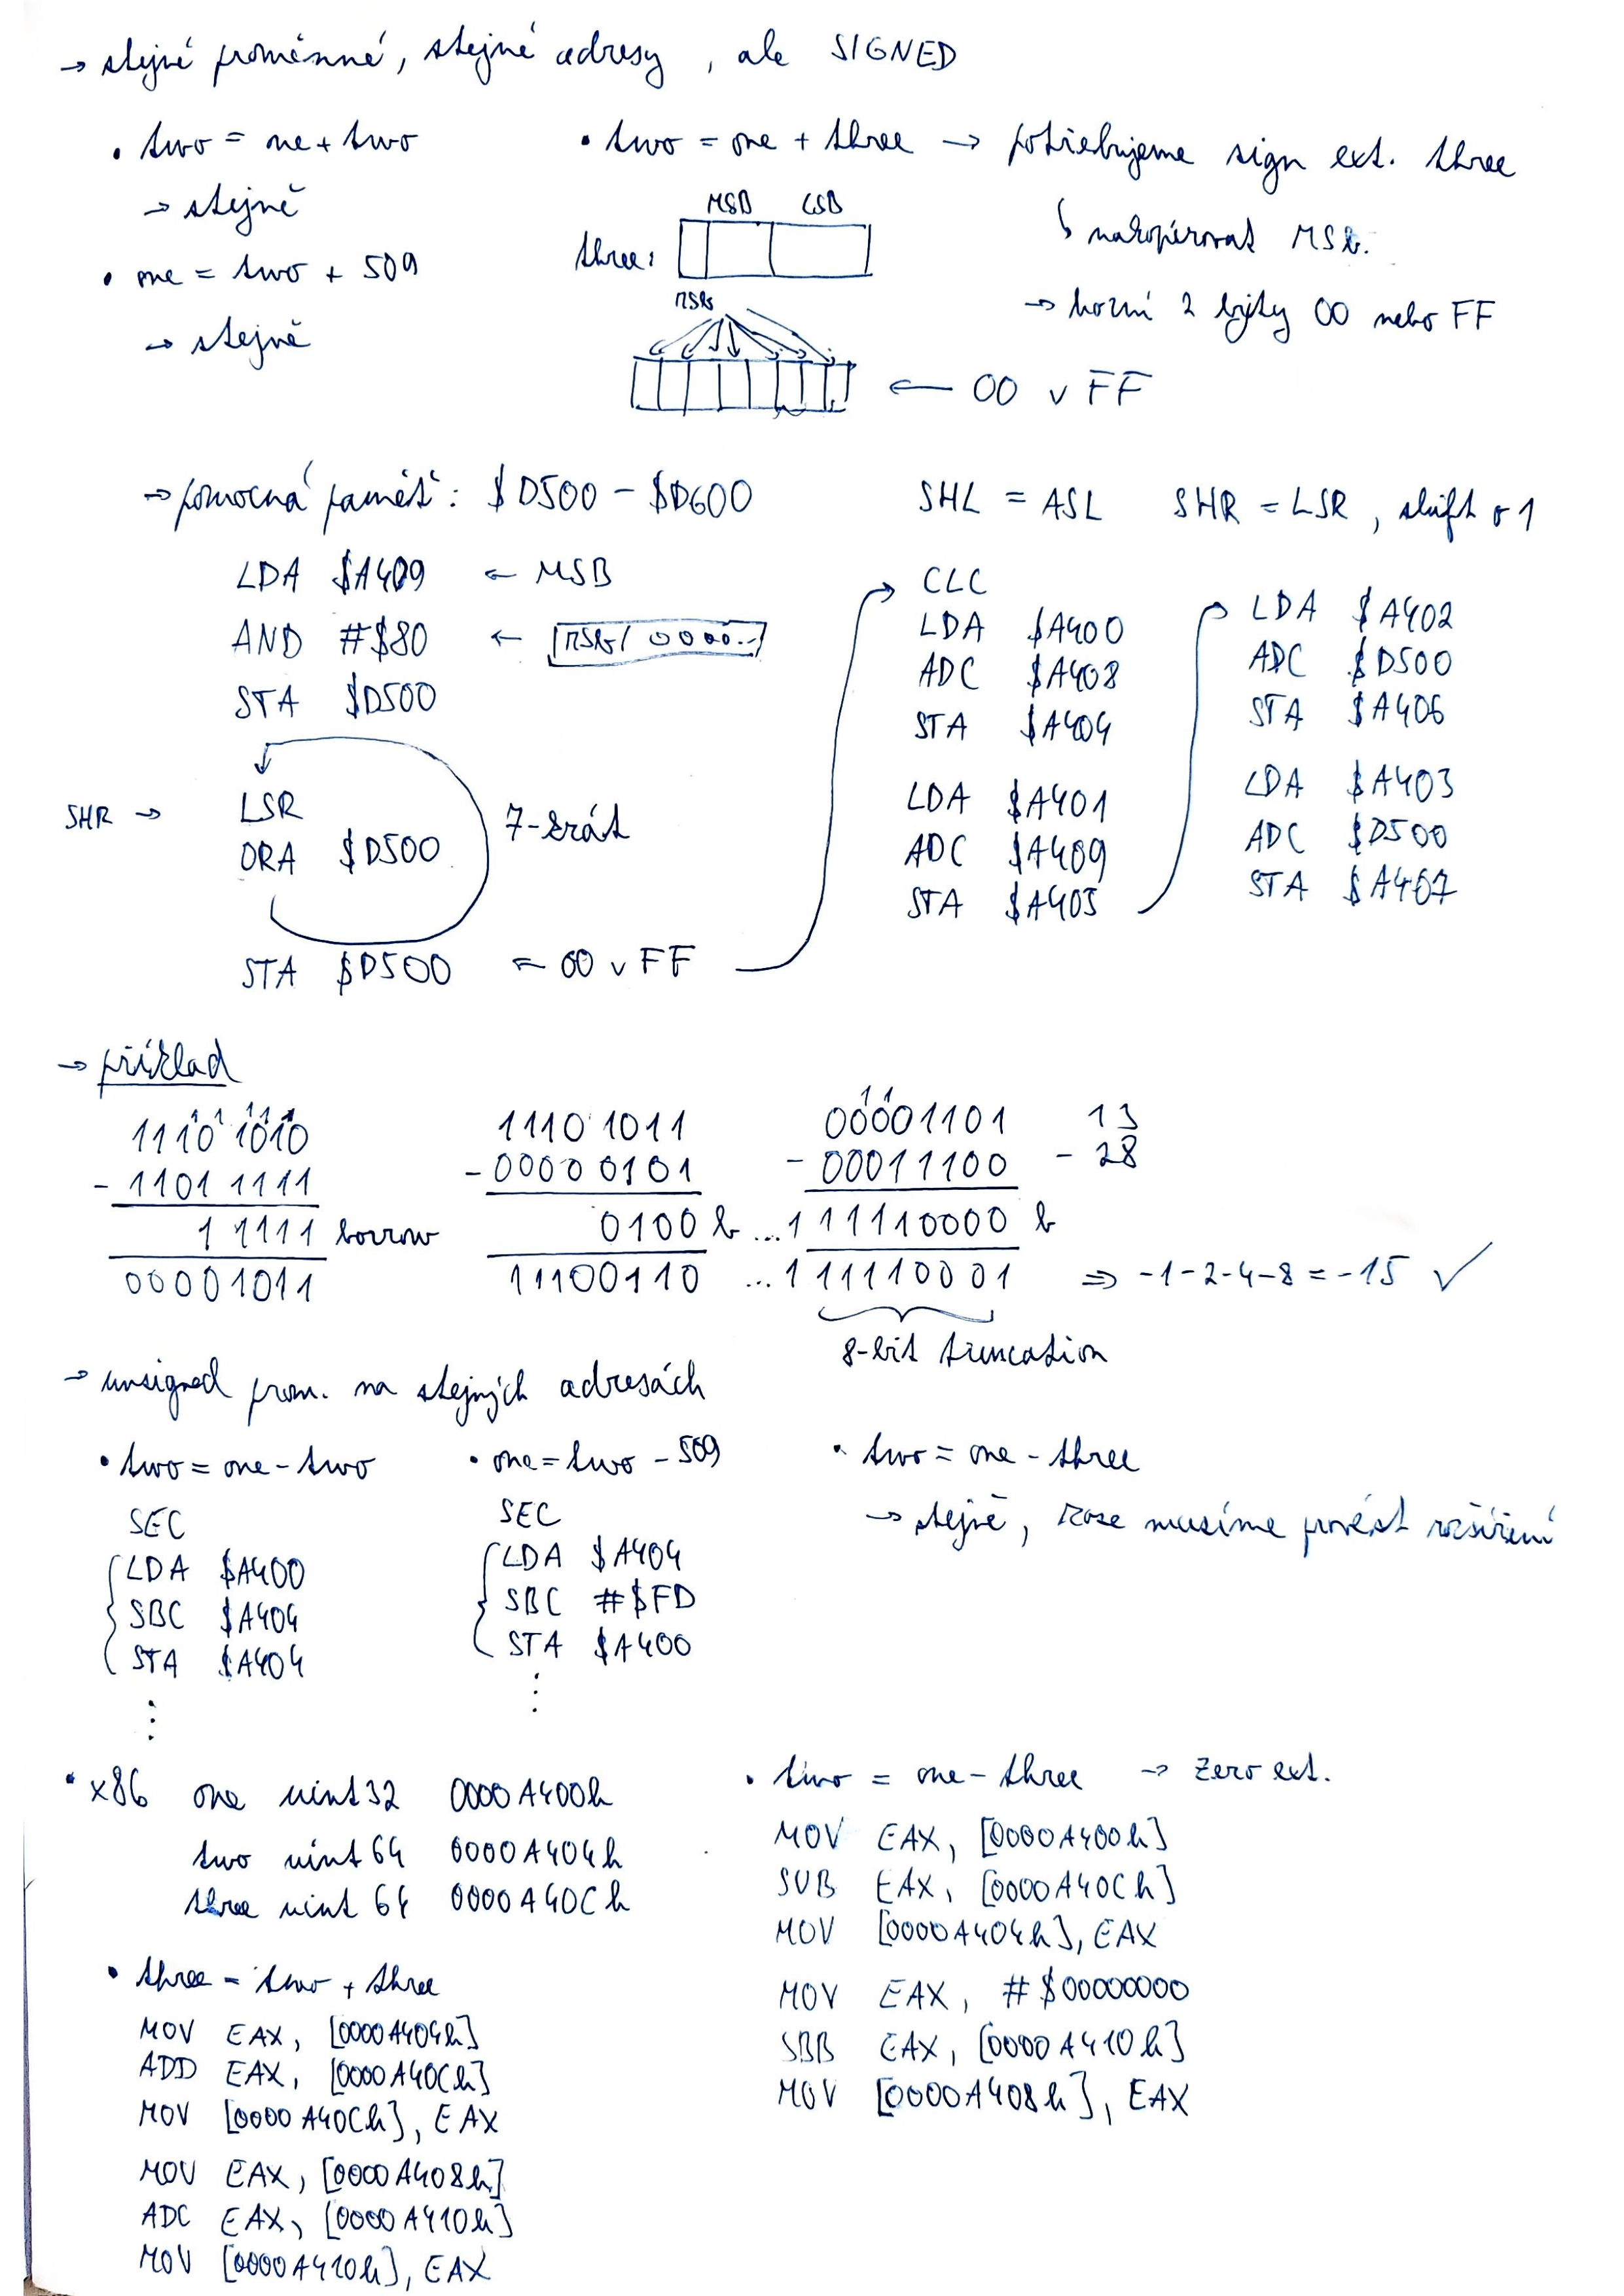 → stejné proměnné, stejné adresy, ale SIGNED
• two = one + two
→ stejně
• one = two + 509
→ stejně
• two = one + three → potřebujeme sign ext. three
↳ nakopírovat MSb.
→ horní 2 byty 00 nebo FF
MSB LSB
three:
MSb
← 00 v FF
→ pomocná paměť: $D500 – $D600
SHL = ASL SHR = LSR, shift o 1
LDA $A409 ← MSB
AND #$80 ← MSb 0000..
STA $D500
SHR → LSR
ORA $D500
7-krát
STA $D500 ← 00 v FF
CLC
LDA $A400
ADC $A408
STA $A404
LDA $A401
ADC $A409
STA $A405
LDA $A402
ADC $D500
STA $A406
LDA $A403
ADC $D500
STA $A407
→ příklad
1 1 1 1 1
1110 1010
- 1101 1111
1 1111 borrow
00001011
1110 1011
-0000 0101
0100 b
11100110
1 1
00001101
- 00011100
...1 11110000 b
...1 11110001 ⇒ -1-2-4-8 = -15 ✓
8-bit truncation
13
- 28
→ unsigned prom. na stejných adresách
• two = one - two
SEC
LDA $A400
SBC $A404
STA $A404
⋮
• one = two - 509
SEC
LDA $A404
SBC #$FD
STA $A400
⋮
• two = one - three
→ stejně, zase musíme provést rozšíření
• x86 one uint32 0000A400h
two uint64 0000A404h
three uint64 0000A40Ch
• three = two + three
MOV EAX, [0000A404h]
ADD EAX, [0000A40Ch]
MOV [0000A40Ch], EAX
MOV EAX, [0000A408h]
ADC EAX, [0000A410h]
MOV [0000A410h], EAX
• two = one - three → zero ext.
MOV EAX, [0000A400h]
SUB EAX, [0000A40Ch]
MOV [0000A404h], EAX
MOV EAX, #$00000000
SBB EAX, [0000A410h]
MOV [0000A408h], EAX